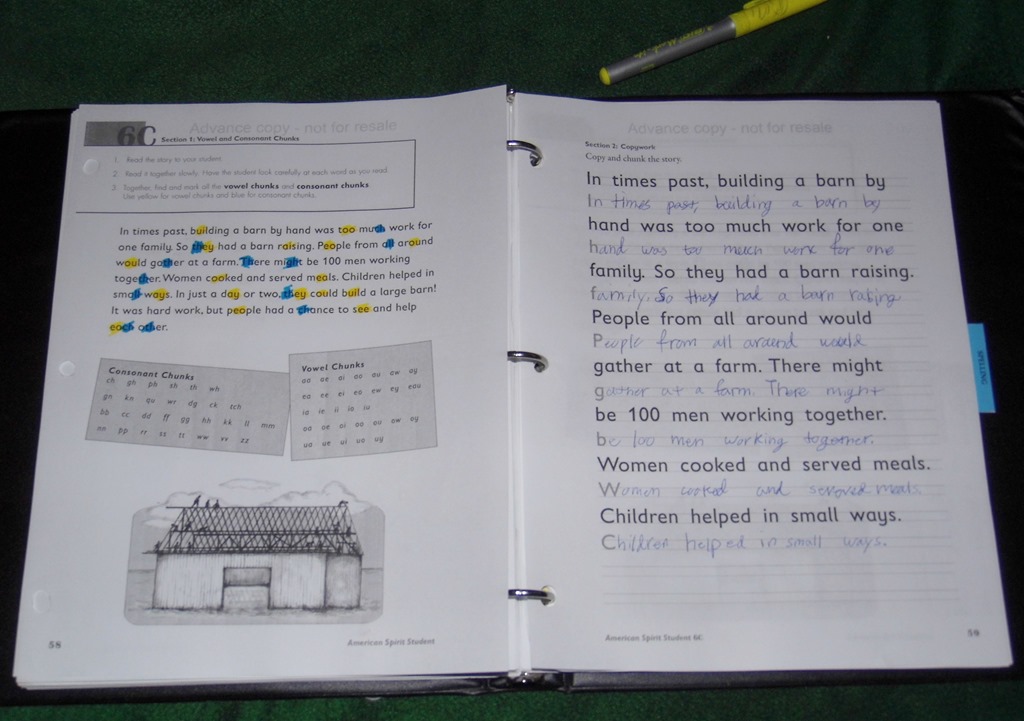 6C
Advance copy - not for resale
Section 1: Vowel and Consonant Chunks
1. Read the story to your student.
2. Read it together slowly. Have the student look carefully at each word as you read.
3. Together, find and mark all the vowel chunks and consonant chunks.
Use yellow for vowel chunks and blue for consonant chunks.
In times past, building a barn by hand was too much work for
one family. So they had a barn raising. People from all around
would gather at a farm. There might be 100 men working
together. Women cooked and served meals. Children helped in
small ways. In just a day or two, they could build a large barn!
It was hard work, but people had a chance to see and help
each other.
Consonant Chunks
ch gh ph sh th wh
gn kn qu wr dg ck tch
bb cc dd ff gg hh kk ll mm
nn pp rr ss tt ww vv zz
Vowel Chunks
aa ae ai ao au aw ay
ea ee ei eo ew ey eau
ia ie ii io iu
oa oe oi oo ou ow oy
ua ue ui uo uy
58
American Spirit Student
Advance copy - not for resale
Section 2: Copywork
Copy and chunk the story.
In times past, building a barn by
In times past, building a barn by
hand was too much work for one
hand was too much work for one
family. So they had a barn raising.
family. So they had a barn
People from all around would
People from all around would
gather at a farm. There might
gather at a farm. There might
be 100 men working together.
be 100 men working together.
Women cooked and served meals.
Women cooked and meals.
Children helped in small ways.
Children helped in small ways.
American Spirit Student 6C
58
SPELLING